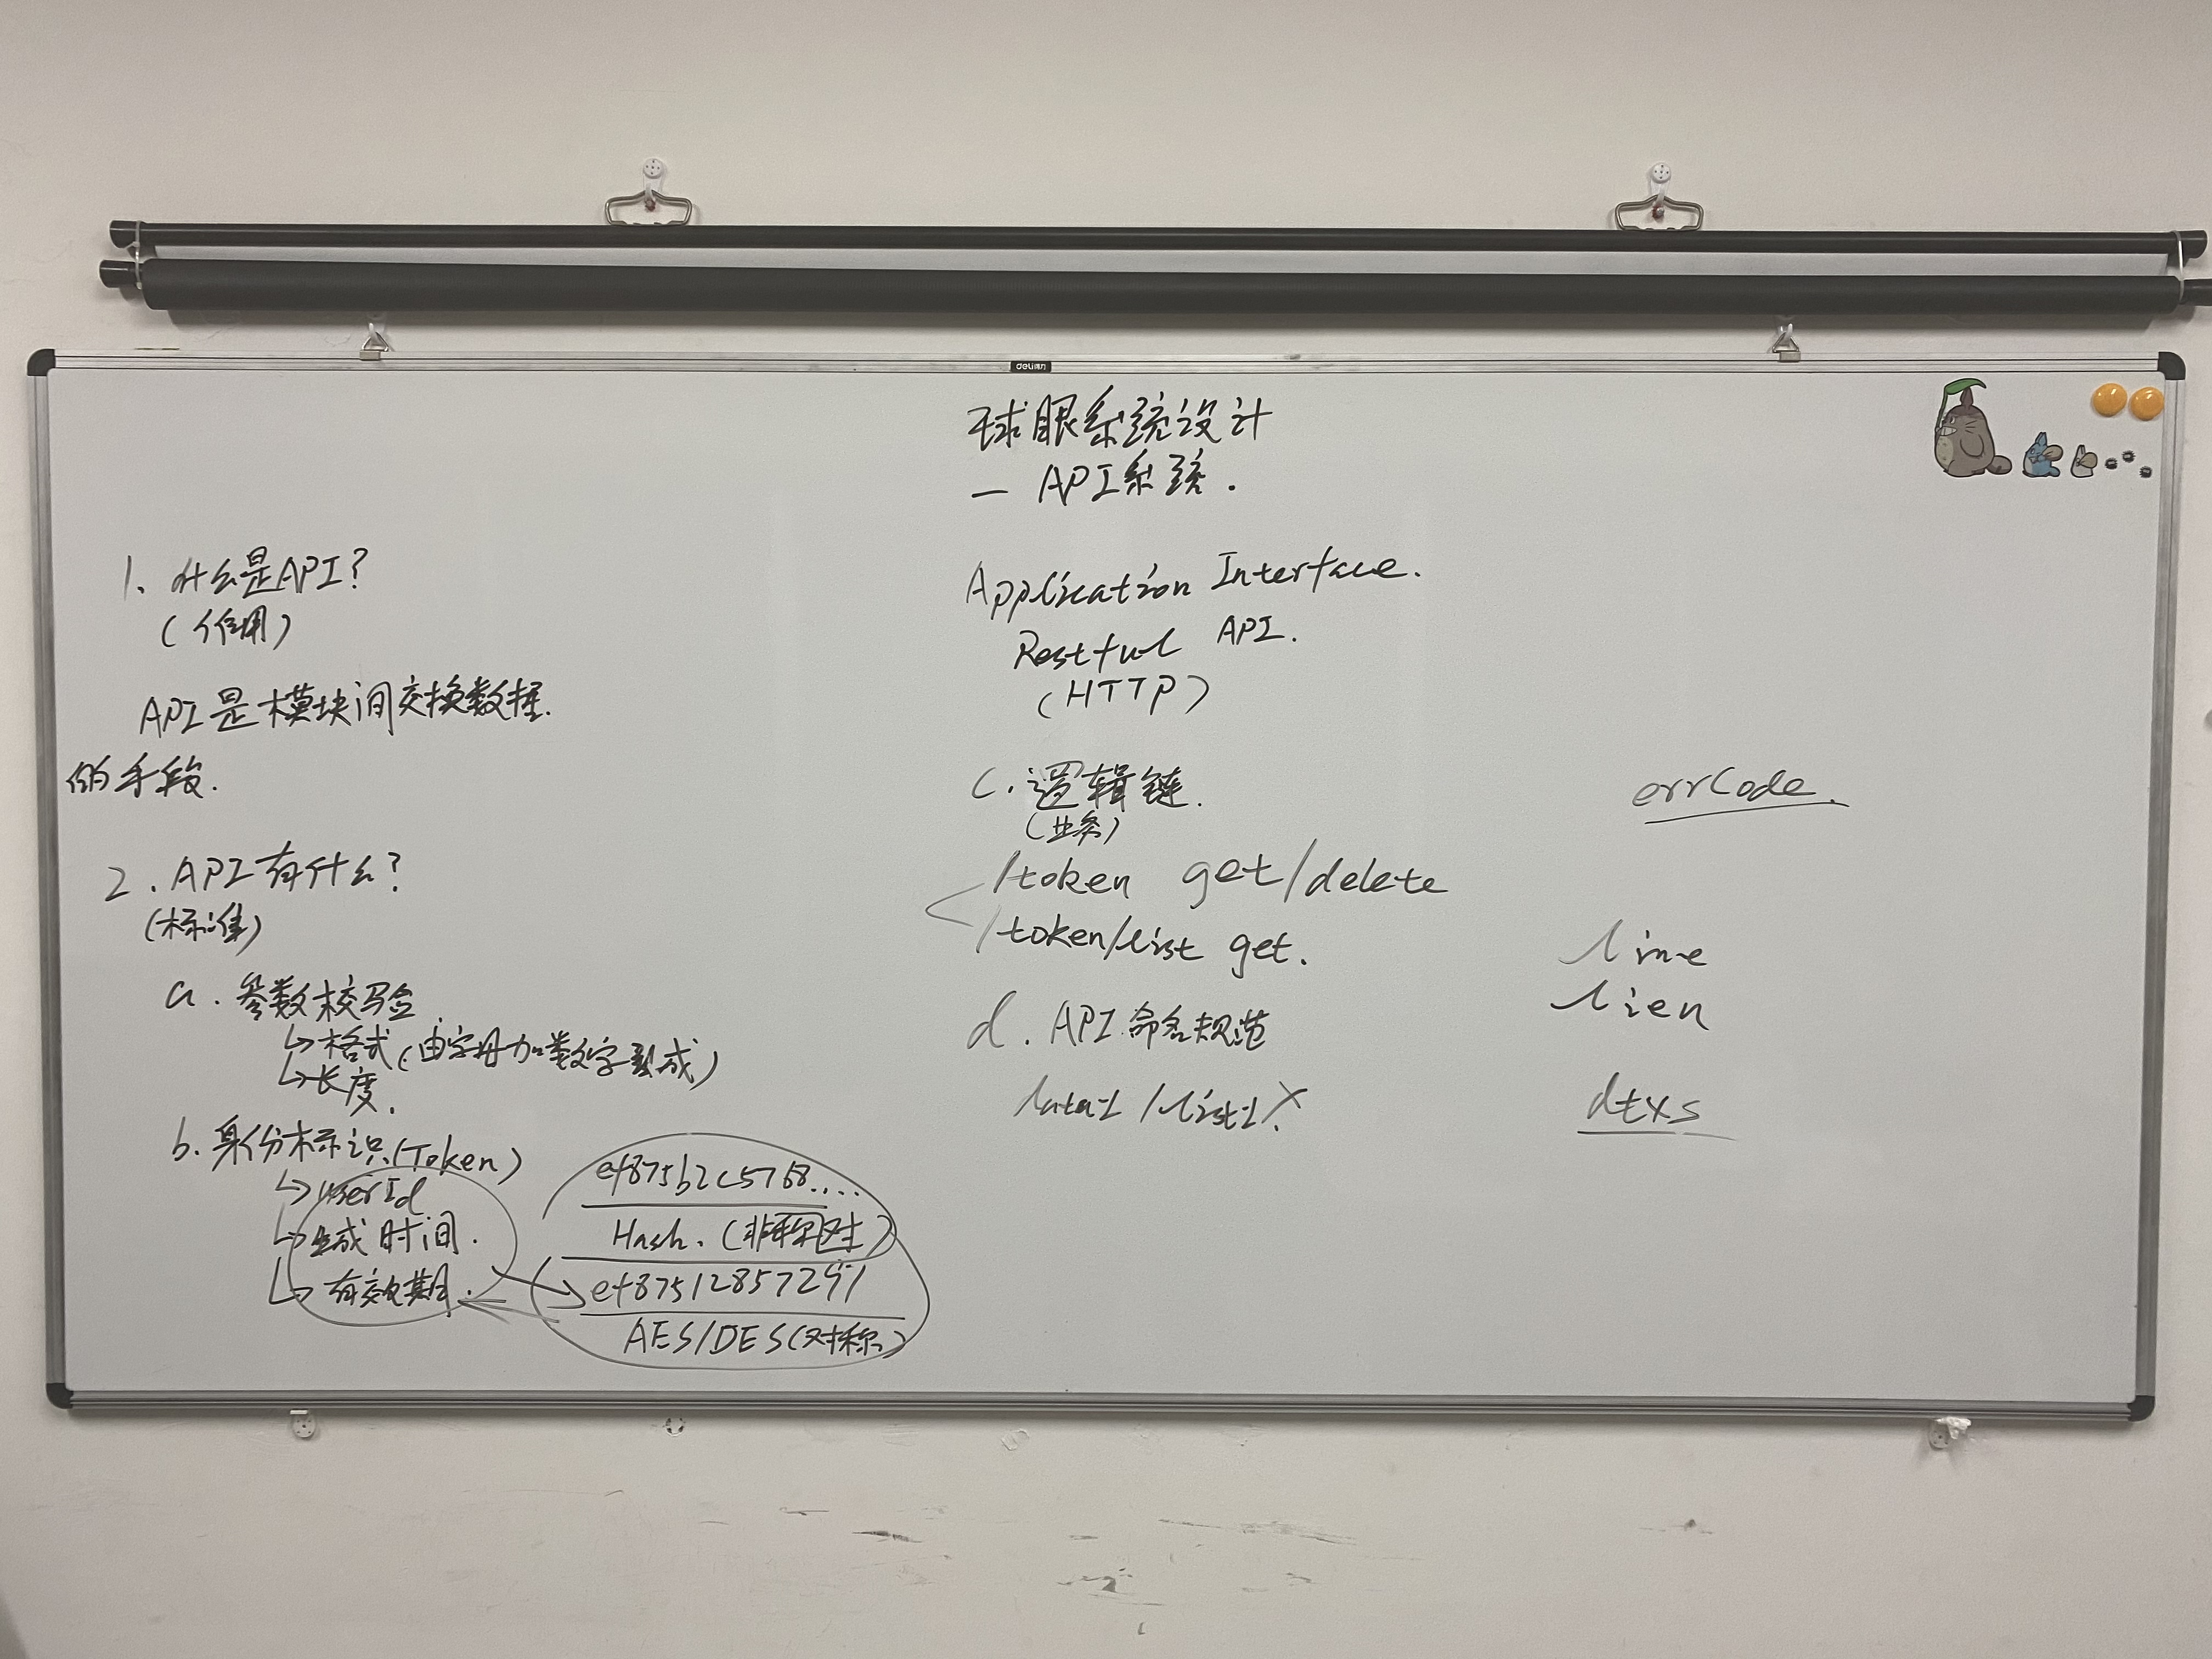 deli得力
球眼系统设计
— API系统.
1. 什么是API?
(作用)
API是模块间交换数据
的手段.
2. API有什么?
(标准)
a. 参数校验
↳格式(由字母加数字组成)
↳长度.
b. 身份标识(Token)
↳userId
↳生成时间.
↳有效期.
ef875b2c5768....
Hash. (非对称)
ef87512857291
AES/DES(对称)
Application Interface.
Restful API.
(HTTP)
c. 逻辑链.
(业务)
/token get/delete
/token/list get.
d. API命名规范
/data1 /list1 X
errCode.
line
lien
dtxs